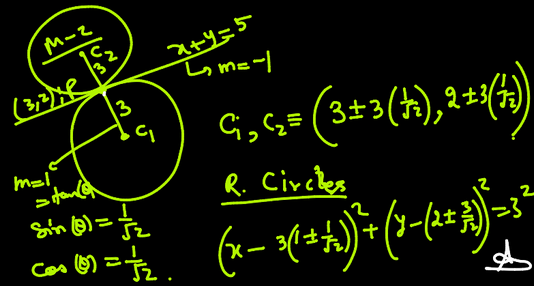 M-2
C₂
3
x+y=5
↳ m=-1
(3,2) ; P
3
C₁
m=1
=tan(θ)
sin(θ)=1/√2
cos(θ)=1/√2.
C₁, C₂ ≡ (3±3(1/√2), 2±3(1/√2))
R. Circles
(x-3(1±1/√2))²+(y-(2±3/√2))²=3²